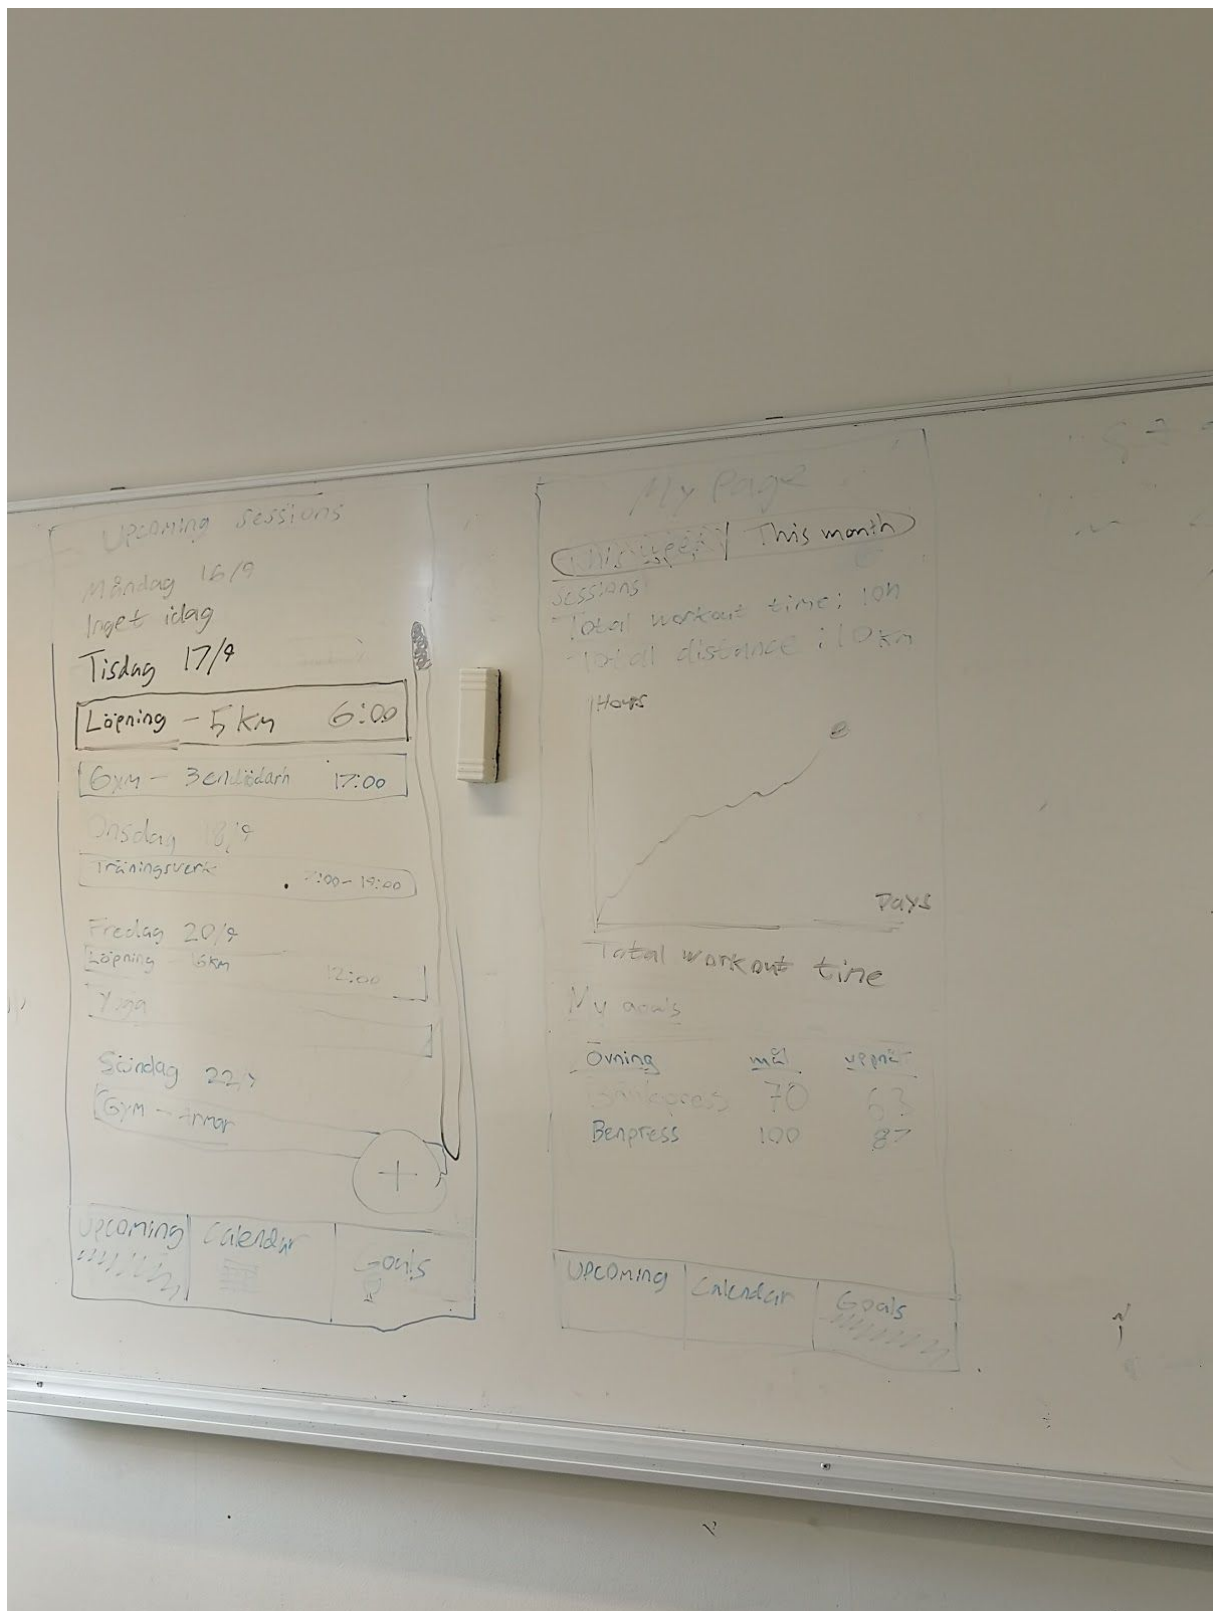 Upcoming Sessions
Måndag 16/9
Inget idag
Tisdag 17/9
Löpning - 5 km 6:00
Gym - 17:00
Onsdag 18/9
Träningsverk - 19:00
Fredag 20/9
Löpning 12:00
Yoga
Söndag
Gym - Armar
+
Upcoming Calendar Goals
My Page
This week / This month
Sessions
Total workout time: 10h
Total distance: 10 km
Hours
Days
Total workout time
My goals
Övning mål
Bänkpress 70 63
Benpress 100 87
Upcoming Calendar Goals